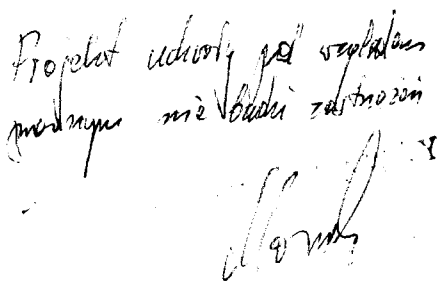 Projekt uchwały pod względem
prawnym nie budzi zastrzeżeń